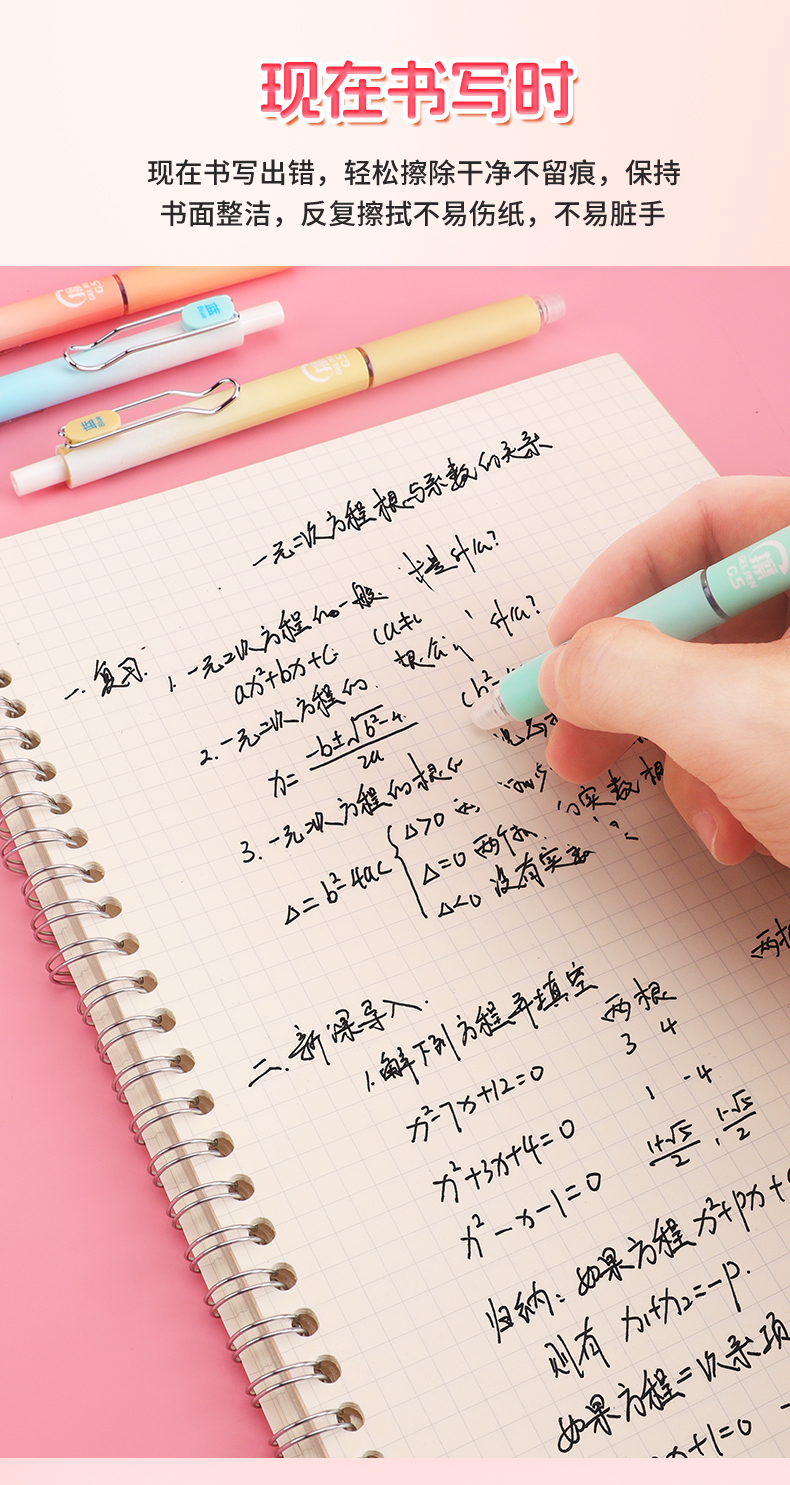 现在书写时
现在书写出错，轻松擦除干净不留痕，保持
书面整洁，反复擦拭不易伤纸，不易脏手
蓝
一元二次方程根与系数的关系
一. 复习: 1. 一元二次方程的一般 式是什么?
ax²+bx+c (a≠
2. 一元二次方程的 什么?
x= -b±√b²-4 / 2a (b²-
3. 一元二次方程的根的
Δ=b²-4ac { Δ>0 两 的实数根
Δ=0 两个
Δ<0 没有实数
两根
二. 新课导入.
1. 解下列方程并填空 两根
x²-7x+12=0 3 4
x²+3x+4=0 1 -4
x²-x-1=0 1+√5/2 , 1-√5/2
归纳: 如果方程x²+px+
则有 x1+x2=-p.
如果方程二次系项
x+1=0